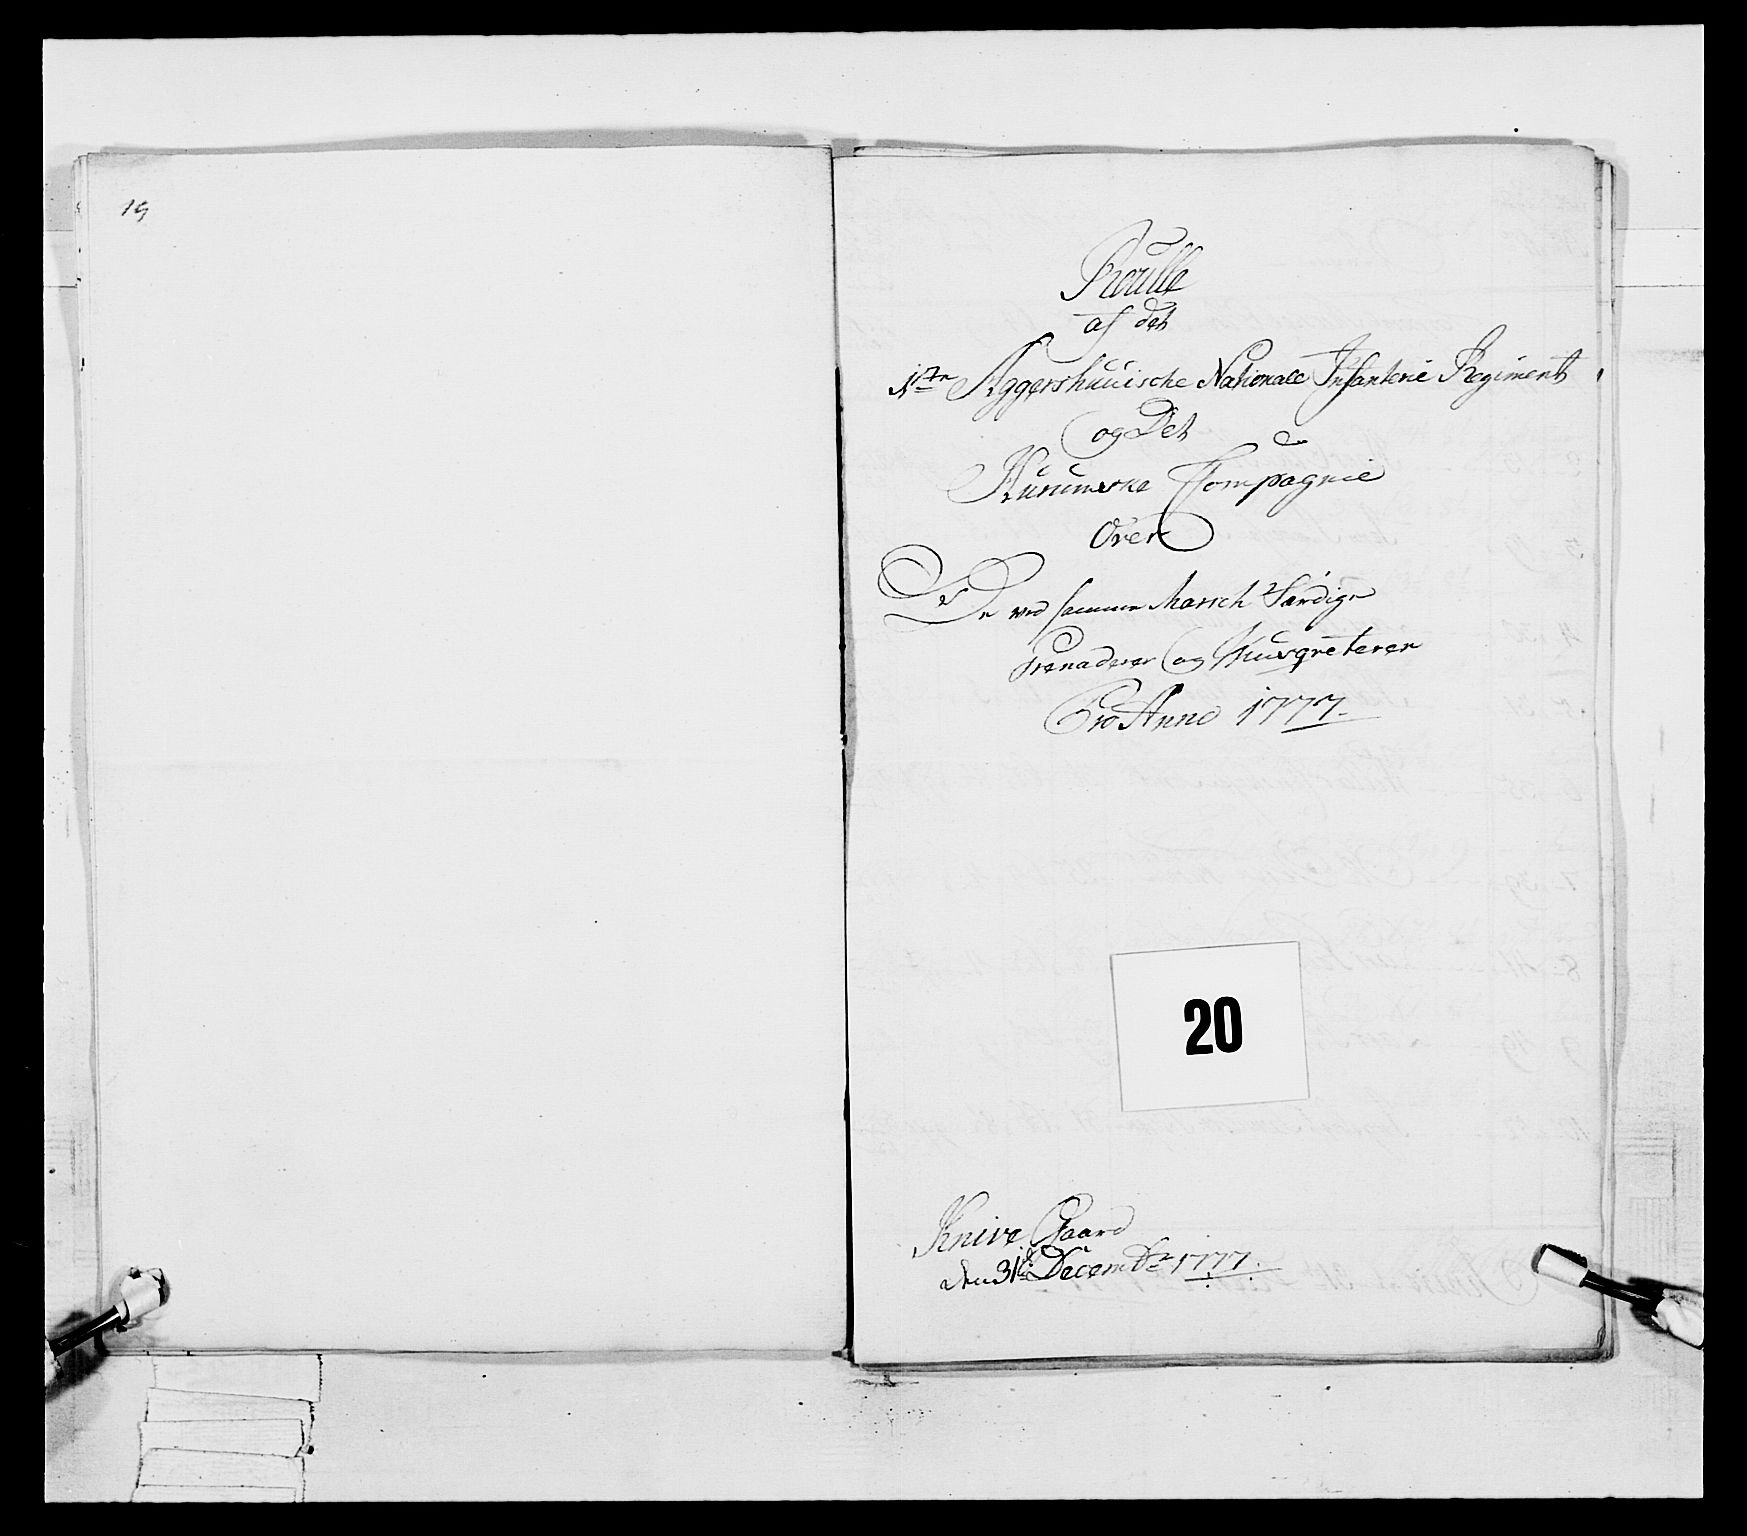 19
Roulle
af det
1ste Aggershuusische Nationale Infanterie Regiment
og Det
Hurumske Compagnie
Over
De ved samme Marsch Færdige
Grenaderer og Musqveterer
Pro Anno 1777.
20
Knive Gaard
den 31te Decembr 1777.